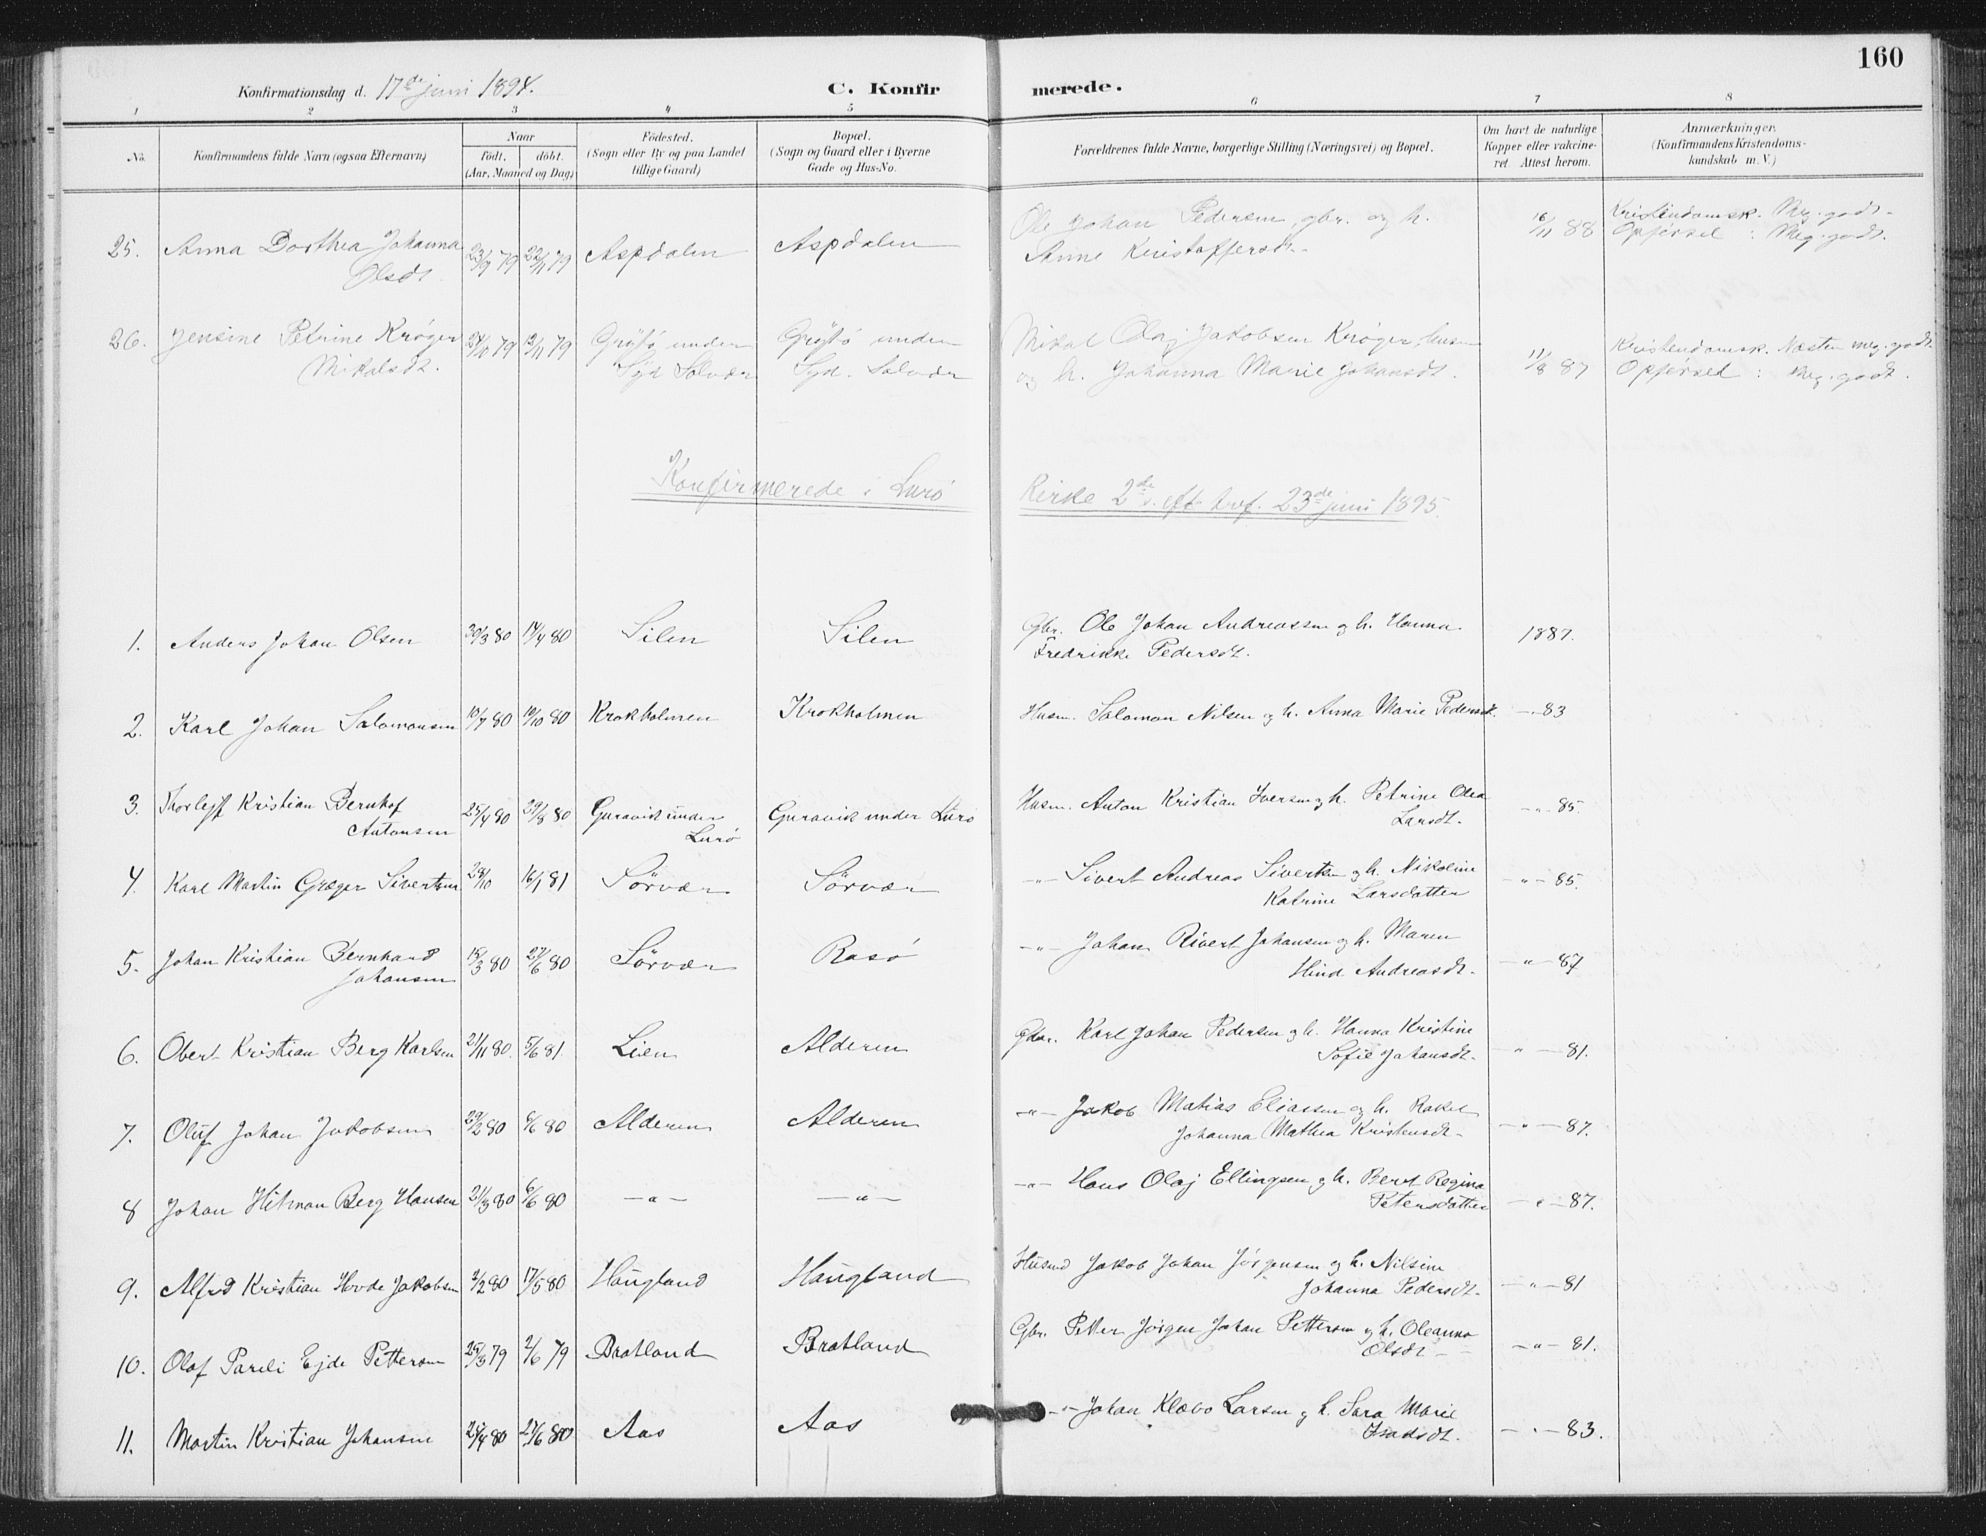 160
Konfirmationsdag d. 17de juni 1894.
C. Konfirmerede.
1 2 3 4 5 6 7 8
No.
Konfirmandens fulde Navn (ogsaa Efternavn)
Naar
födt. döbt.
(Aar, Maaned og Dag)
Födested.
(Sogn eller By og paa Landet
tillige Gaard)
Bopæl.
(Sogn og Gaard eller i Byerne
Gade og Hus-No.
Forældrenes fulde Navne, borgerlige Stilling (Næringsvei) og Bopæl.
Om havt de naturlige
Kopper eller vakcine-
ret. Attest herom.
Anmærkninger.
(Konfirmandens Kristendoms-
kundskab m. V.)
25. Anna Dorthea Johanna 23/9 79 22/11 79 Aspdalen Aspdalen Ole Johan Pedersen gbr. og h. 16/11 88 Kristendomsk. Meg. godt.
Olsdt. Anne Kristoffersdt. Opförsel : Meg. godt.
26. Jensine Petrine Kröger 79 79 under under Mikal Olaj Jakobsen Kröger husm 11/8 87 Kristendomsk. Næsten meg. godt.
Mikalsdt. Syd Solvær Syd. Solvær og h. Johanna Marie Johansdt. Opförsel : Meg. godt.
Konfirmerede i Lurö Kirke 2de s. eft tref. 23de juni 1895.
1. Anders Johan Olsen 30/3 80 14/4 80 Silen Silen Gbr. Ole Johan Andreassen og h. Hanna 1887.
Fredrikke Pedersdt.
2. Karl Johan Salomonsen 10/7 80 10/10 80 Krokholmen Krokholmen Husm. Salomon Nilsen og h. Anna Marie Pedersdt. -"- 83
3. Thorlejf Kristian Bernhof 25/4 80 29/8 80 Guravik under Guravik under Lurö Husm. Anton Kristian Iversen og h. Petrine Olea -"- 85.
Antonsen Lurö Larsdt.
4. Karl Martin Græger Sivertsen 28/10 16/1 81 Sörvær Sörvær -"- Sivert Andreas Sivertsen og h. Nikoline -"- 85.
Katrine Larsdatter
5. Johan Kristian Bernhard 18/3 80 27/6 80 Sörvær Rasö -"- Johan Rivert Johansen og h. Maren -"- 87
Johansen Hind Andreasdt.
6. Obert Kristian Berg Karlsen 21/11 80. 5/6 81. Lien Alderen Gbr. Karl Johan Pedersen og h. Hanna Kristine -"- 81.
Sofie Johansdt.
7. Oluf Johan Jakobsen 29/2 80 6/6 80 Alderen Alderen -"- Jakob Matias Eliassen og h. Rakel -"- 87.
Johanna Mathea Kristensdt.
8 Johan Hilman Berg Hansen 21/3 80 6/6 80 -"- -"- -"- Hans Olaj Ellingsen og h. Beret Regina -"- 87.
Petersdatter
9. Alfred Kristian Hovde Jakobsen 2/2 80 17/5 80 Haugland Haugland Husmd Jakob Johan Jörgensen og h. Nilsine -"- 81
Johanna Pedersdt.
10. Olaf Pareli Ejde Pettersen 25/3 79 2/6 79 Bratland Bratland Gbr. Petter Jörgen Johan Pettersen og h. Oleanna -"- 81.
Olsdt
11. Martin Kristian Johansen 25/4 80 27/6 80 Aas Aas -"- Johan Klæbo Larsen og h. Sara Marie -"- 83.